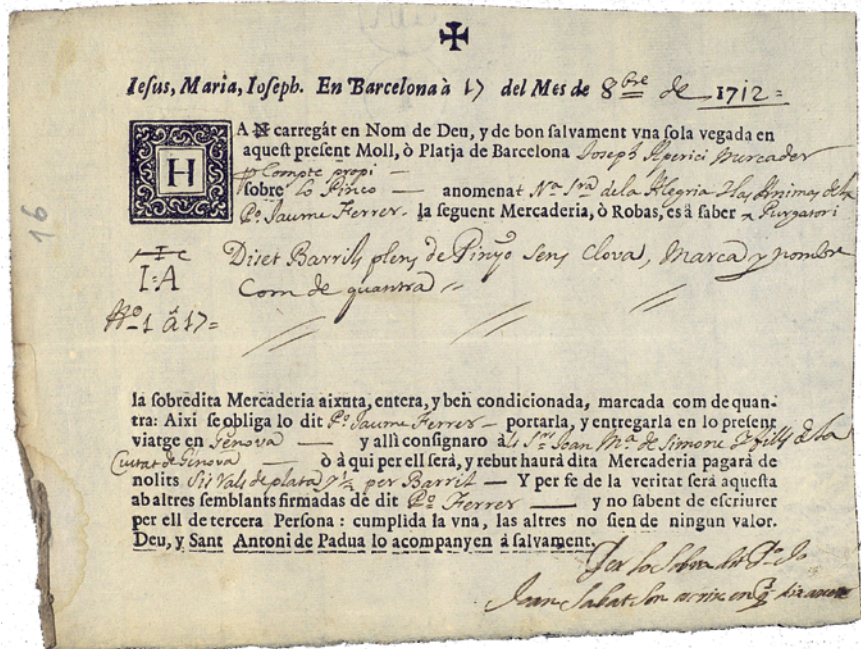 Iesus, Maria, Ioseph. En Barcelona à 17 del Mes de 8bre de 1712=
HA N carregát en Nom de Deu, y de bon salvament vna sola vegada en
aquest present Moll, ò Platja de Barcelona Joseph Aperici Mercader
Compte propi
sobre lo Pinco — anomenat Na Sra de la Alegria y las Animas del
Pº Jaume Ferrer. la seguent Mercaderia, ò Robas, es à saber Purgatori
I=A
Diset Barrils plens de Pinyo sens Clova, Marca y nombre
Com de quantra
Nº 1 à 17=
16
la sobredita Mercaderia aixuta, entera, y ben condicionada, marcada com de quan-
tra: Aixi se obliga lo dit Pº Jaume Ferrer — portarla, y entregarla en lo present
viatge en Genova — y alli consignaro à ls Srs Joan Ma de Simone y fills de la
Ciutat de Genova — ò à qui per ell serà, y rebut haurà dita Mercaderia pagarà de
nolits Sis Rals de plata y ½ per Barril — Y per fe de la veritat serà aquesta
ab altres semblants firmadas de dit Pº Ferrer — y no sabent de escriurer
per ell de tercera Persona: cumplida la vna, las altres no sien de ningun valor.
Deu, y Sant Antoni de Padua lo acompanyen à salvament.
Per lo Sobre dit Pº Jo
Joan Sabat